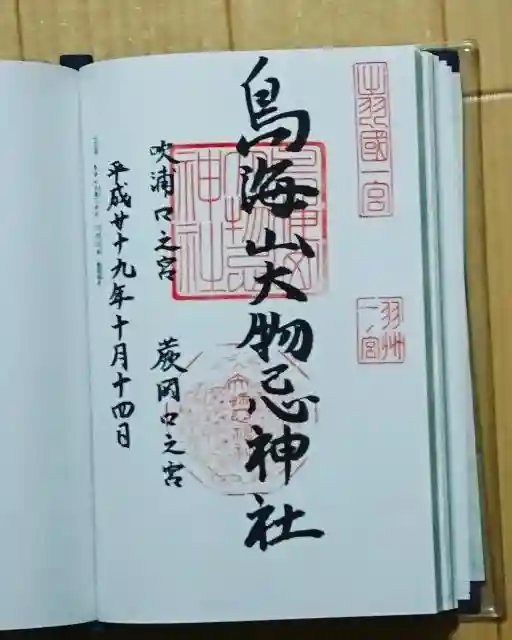 出羽國一宮
羽州
一ノ宮
鳥海山大物忌神社
吹浦口之宮 蕨岡口之宮
平成廿十九年十月十四日